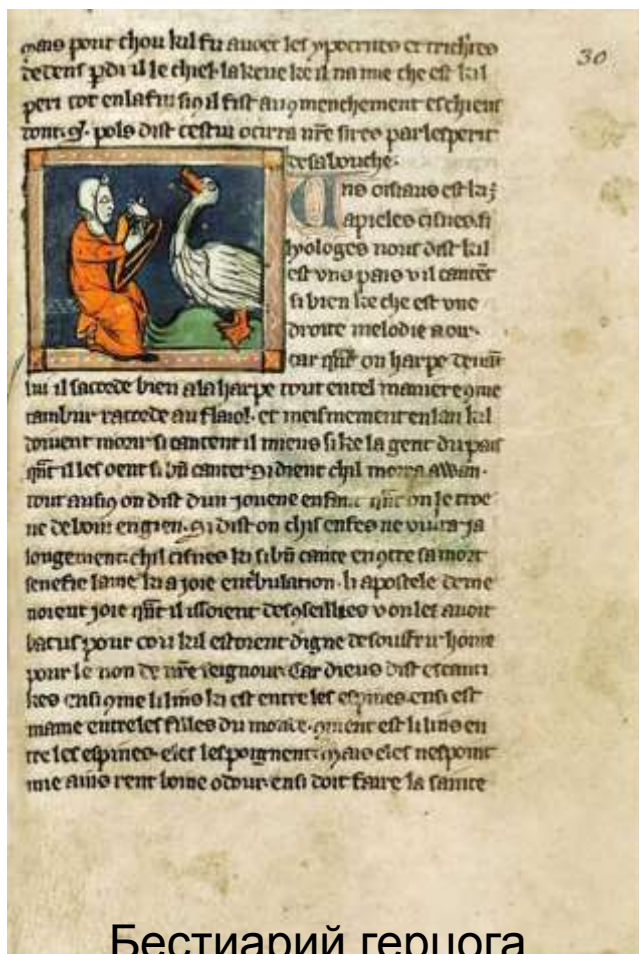 30
mais pour chou kil fu auoec les ypocrites et trichres
dedens p̃di il le chief la keue ke il na mie che est kil
peri tot en la fin si ꝯ il fist au ꝯmenchement eschieus
pols dist cestui ocirra nr̃e sires par lesperit
de sa bouche.
Uns oisiaus est ki
apieles cisnes. fi
syologes nous dist kil
est uns pais v il cantẽt
si bien ke che est une
droite melodie a oir.
car qñt on harpe deuãt
lui il sacorde bien a la harpe tout en tel maniere ꝯme
tambur sacorde au flaiol. et meismement en lan kil
doiuent morir si cantent il mieus si ke la gent du pais
qñt il les oent si bñ canter si dient chil morra awan.
tout ausi ꝯ on dist dun jouene enfant qñt on le troe
ue de boin engien. si dist on chis enfes ne viura ja
longement. chil cisnes ki si bñ cante encꝯtre sa mort
senefie lame ki a joie en tribulation. li apostele deme
noient joie qñt il issoient des ꝯseilles v on les auoit
batus pour cou kil estoient digne de souffrir honte
pour le non de nr̃e seignour. Car dieus dist es canti
kes ensi ꝯme li lilies ki est entre les espines ensi est
mamie entre les filles du monde. ꝯment est li lilies en
tre les espines. eles les poignent. mais eles nespoint
mie ains rent boine odour. ensi doit faire la sainte
Бестиарий герцога